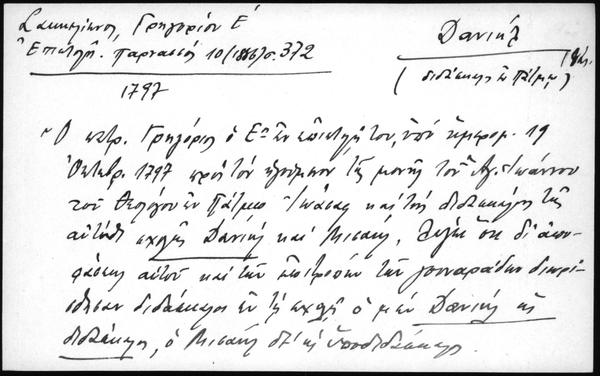 Σακκελίωνος, Γρηγορίου Ε΄
Ἐπιστολή. Παρνασσός 10(1886)σ.372
1797
Δανιὴλ
(διδάσκαλος ἐν Πάτμῳ)
Ὁ πατρ. Γρηγόριος ὁ Ε^ος ἐν ἐπιστολῇ του, ὑπὸ ἡμερομ. 19
Ὀκτωβρ. 1797 πρὸς τὸν ἡγούμενον τῆς μονῆς τοῦ Ἁγ. Ἰωάννου
τοῦ Θεολόγου ἐν Πάτμῳ καὶ τοὺς διδασκάλους τῆς
αὐτόθι σχολῆς Δανιὴλ καὶ Μισαήλ, λέγει ὅτι δι' ἀπο-
φάσεως αὐτοῦ καὶ τῶν ἐπιτρόπων τῶν γουναράδων διωρί-
σθησαν διδάσκαλοι ἐν τῇ σχολῇ ὁ μὲν Δανιὴλ ὡς
διδάσκαλος, ὁ Μισαὴλ δὲ ὡς ὑποδιδάσκαλος.